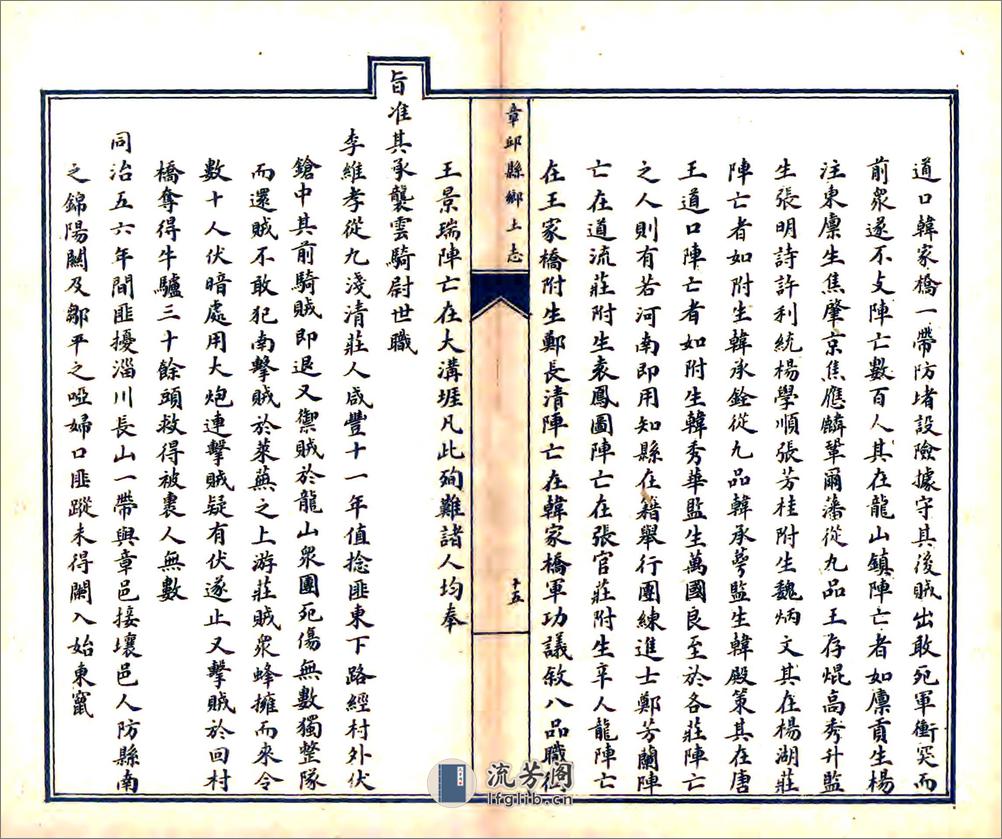 道口韓家橋一帶防堵設險據守其後賊出敢死軍衝突而
前眾遂不支陣亡數百人其在龍山鎮陣亡者如廩貢生楊
注東廩生焦肇京焦應麟鞏爾藩從九品王存焜高秀升監
生張明詩許利統楊學順張芳桂附生魏炳文其在楊湖莊
陣亡者如附生韓承銓從九品韓承蕚監生韓殿策其在唐
王道口陣亡者如附生韓秀華監生萬國良至於各莊陣亡
之人則有若河南即用知縣在籍舉行團練進士鄭芳蘭陣
亡在道流莊附生袁鳳圖陣亡在張官莊附生辛人龍陣亡
在王家橋附生鄭長清陣亡在韓家橋軍功議敘八品職銜
章邱縣鄉土志
十五
王景瑞陣亡在大溝堐凡此殉難諸人均奉
旨准其承襲雲騎尉世職
李維孝從九淺清莊人咸豐十一年值捻匪東下路經村外伏
鎗中其前騎賊即退又禦賊於龍山眾團死傷無數獨整隊
而還賊不敢犯南擊賊於萊蕪之上游莊賊眾蜂擁而來令
數十人伏暗處用大炮連擊賊疑有伏遂止又擊賊於回村
橋奪得牛驢三十餘頭救得被裹人無數
同治五六年間匪擾淄川長山一帶與章邑接壤邑人防縣南
之錦陽關及鄒平之啞婦口匪蹤未得闌入始東竄
流芳閣
lfglib.cn